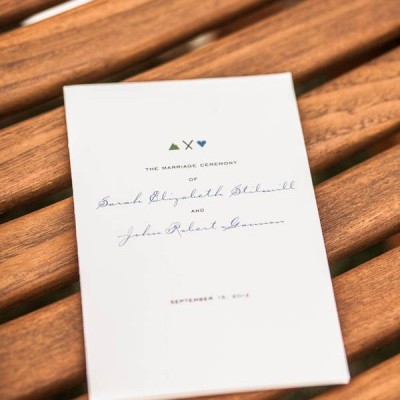 THE MARRIAGE CEREMONY
OF
Sarah Elizabeth Stilwill
AND
John Robert Gannon
SEPTEMBER 15, 2012